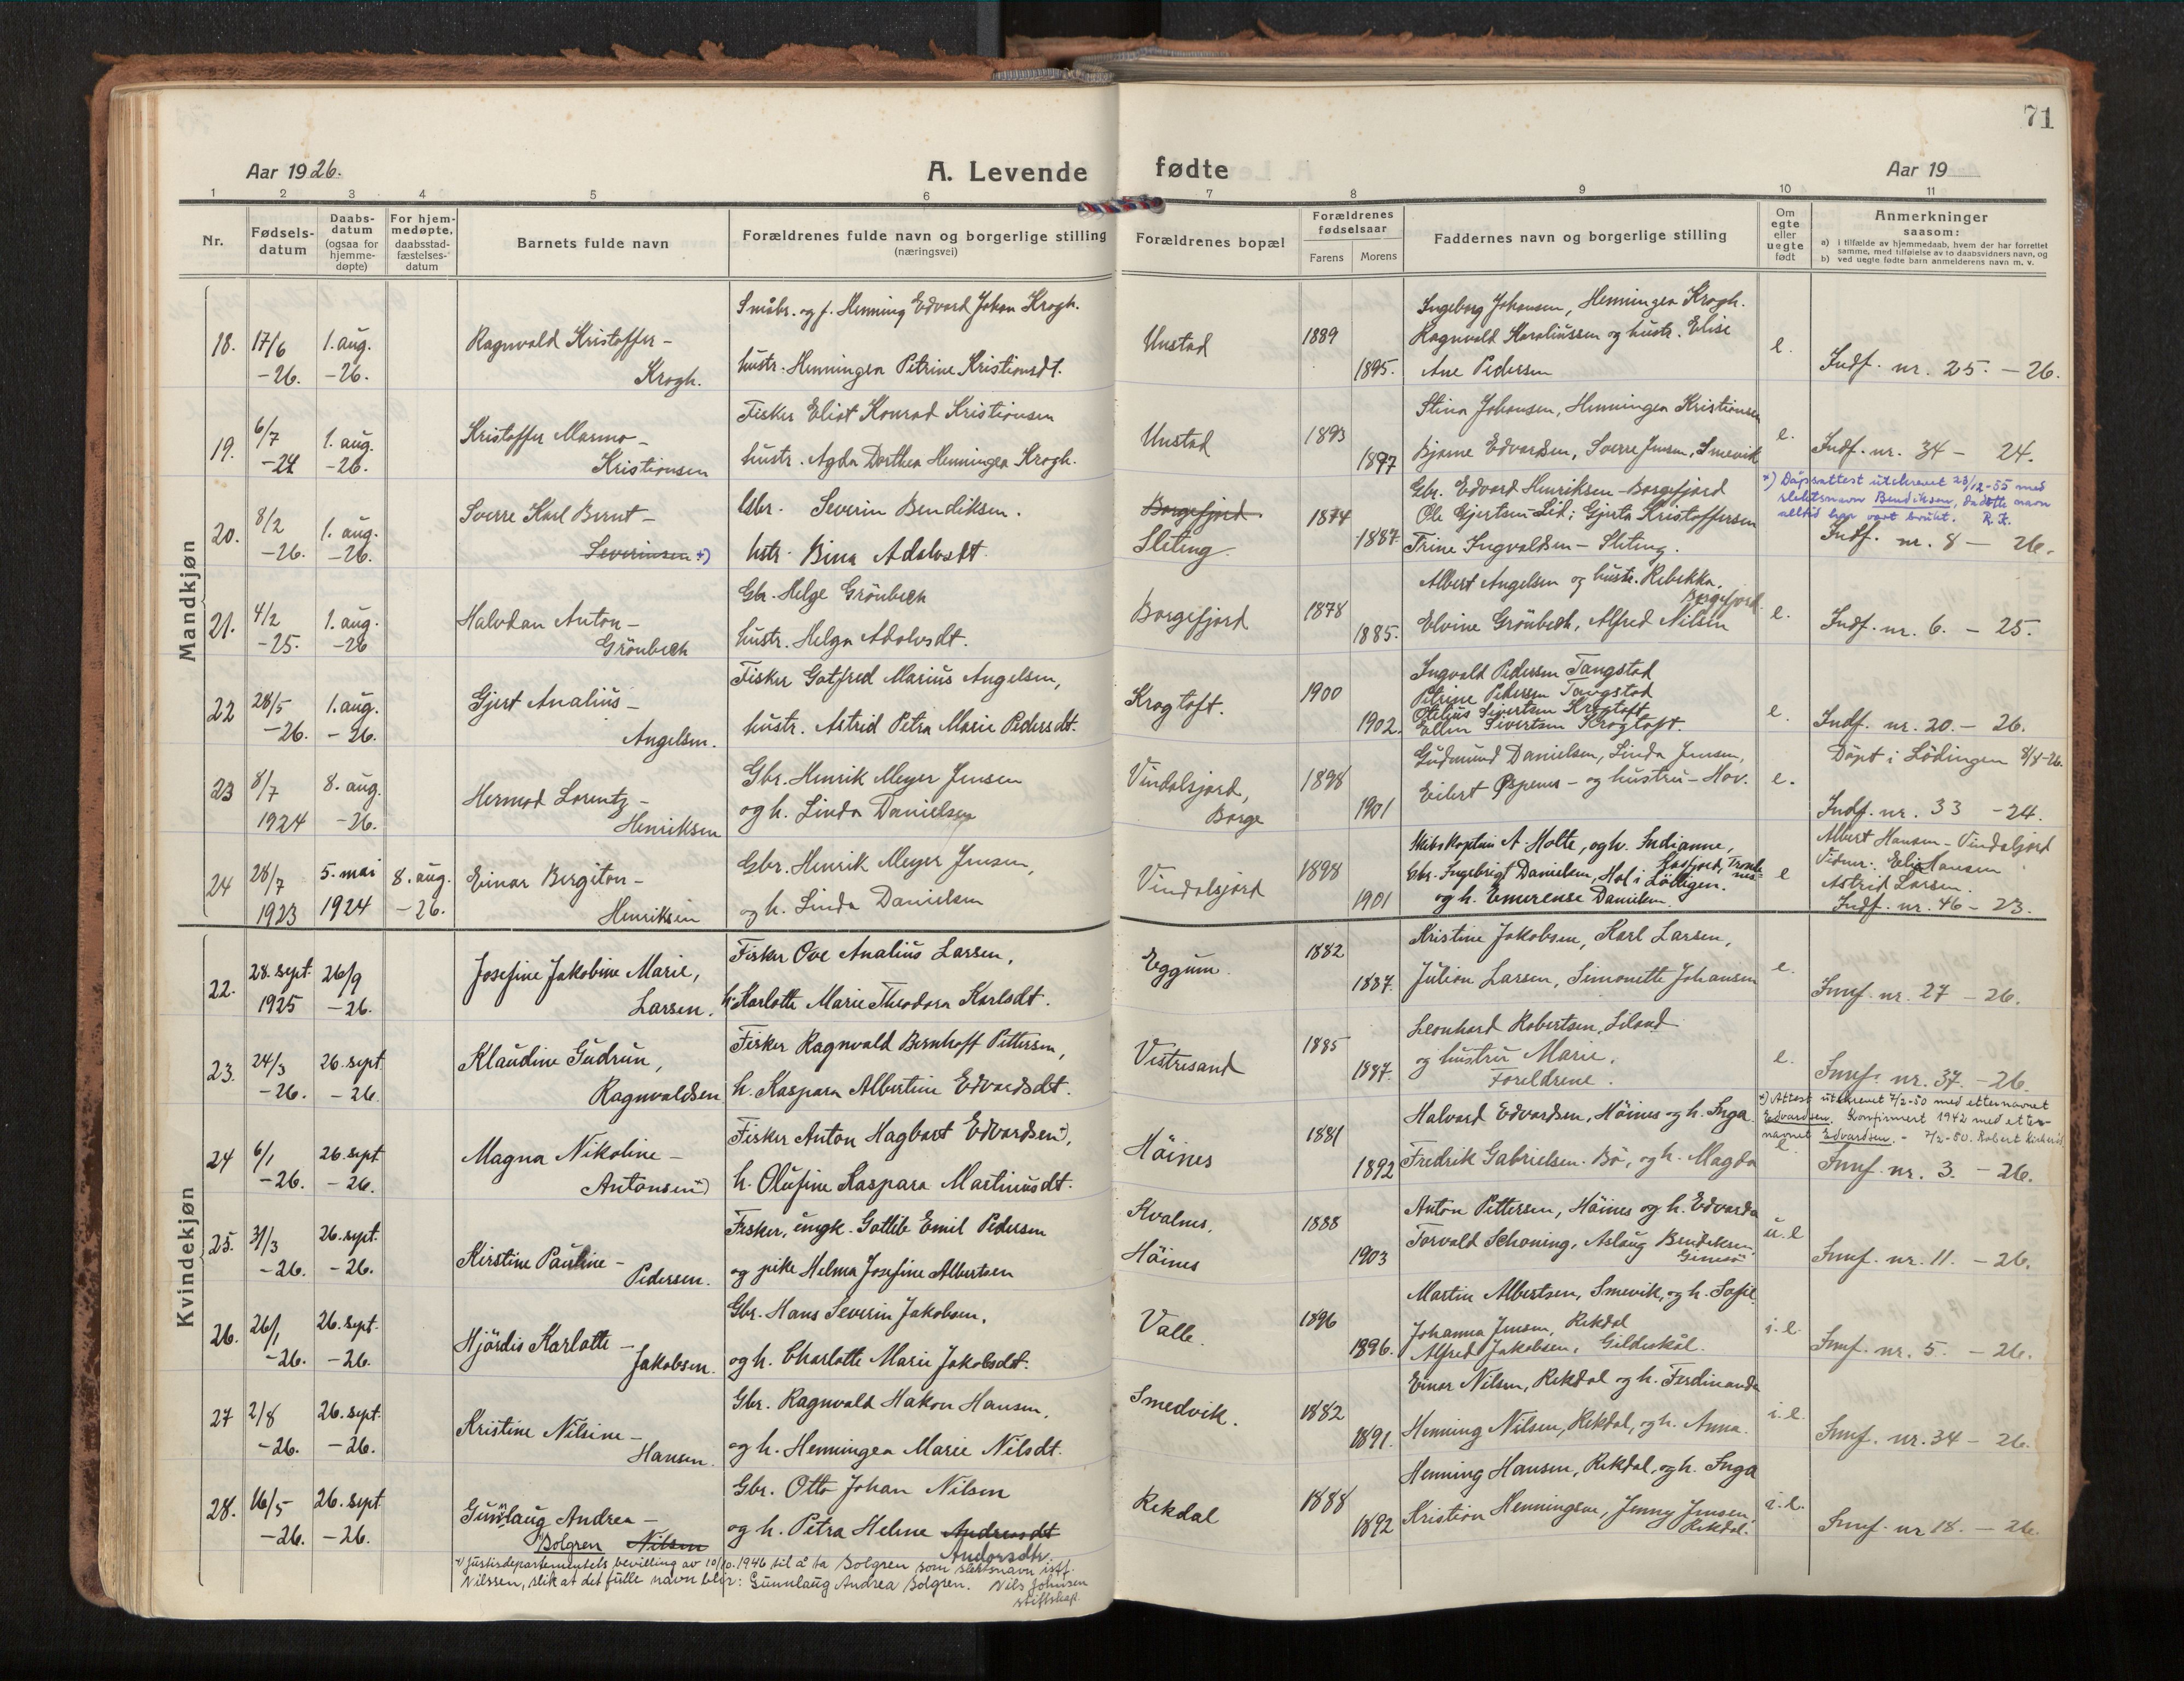 71
Aar 1926.
A. Levende fødte
Aar 19
1 2 3 4 5 6 7 8 9 10 11
Nr.
Fødsels-
datum
Daabs-
datum
(ogsaa for
hjemme-
døpte)
For hjem-
medøpte,
daabsstad-
fæstelses-
datum
Barnets fulde navn
Forældrenes fulde navn og borgerlige stilling
(næringsvei)
Forældrenes bopæl
Forældrenes
fødselsaar
Farens Morens
Faddernes navn og borgerlige stilling
Om
egte
eller
uegte
født
Anmerkninger
saasom:
a) i tilfælde av hjemmedaab, hvem der har forrettet
samme, med tilføielse av to daabsvidners navn, og
b) ved uegte fødte barn anmelderens navn m. v.
Mandkjøn
18. 17/6 -26. 1. aug. -26.
Ragnvald Kristoffer -
Krogh.
Småbr. og f. Henning Edvard Johan Krogh.
hustr. Henningea Petrine Kristiansdt.
Unstad
1889
1895.
Ingeborg Johansen, Henningea Krogh.
Ragnvald Karoliussen og hustr. Elise
Ane Pedersen
e.
Indf. nr. 25. - 26.
19. 6/7 -24 1. aug. -26.
Kristoffer Marmo -
Kristiansen
Fisker Eliot Konrad Kristiansen
hustr. Agda Dorthea Henningea Krogh.
Unstad
1893
1897
Stina Johansen, Henningea Kristiansen
Bjarne Edvardsen, Sverre Jensen, Smevik
e.
Indf. nr. 34 - 24.
20. 8/2 -26. 1. aug. -26.
Sverre Karl Bernt -
Severinsen *)
Gbr. Severin Bendiksen.
hstr. Bina Adolvsdt.
Borgefjord
Sleting.
1874
1887.
Gbr. Edvard Henriksen - Borgefjord
Ole Gjertsen - Lid; Gjerta Kristoffersen
Trine Ingvaldsen - Sleting.
*) Dåpsattest utskrevet 23/12-55 med
slektsnavn Bendiksen, da dette navn
alltid har vært brukt. R. K.
Indf. nr. 8 - 26.
21. 4/2 -25. 1. aug. -26
Halvdan Anton -
Grönbech
Gbr. Helge Grönbech
hustr. Helga Adolvsdt.
Borgefjord
1878
1885.
Albert Angelsen og hustr. Rebekka.
Borgefjord.
Elvine Grönbech, Alfred Nilsen
e.
Indf. nr. 6. - 25.
22 28/5 -26. 1. aug. -26.
Gjert Analius -
Angelsen.
Fisker Gotfred Marius Angelsen,
hustr. Astrid Petra Marie Pedersdt.
Krogtoft.
1900
1902.
Ingvald Pedersen Tangstad
Petrine Pedersen Tangstad
Otelius Sivertsen Krogtoft
Ellen Sivertsen Krogtoft.
e.
Indf. nr. 20. - 26.
23 8/7 1924 8. aug. -26.
Hermod Lorentz -
Henriksen
Gbr. Henrik Meyer Jensen
og h. Linda Danielsen
Vindalsjord,
Borge
1898
1901
Gudmund Danielsen, Linda Jensen,
Eilert Espenes - og hustru - Hov.
e.
Döpt i Lödingen 8/8-26.
Indf. nr. 33 - 24.
24 28/7 1923 5. mai 1924 8. aug. -26.
Einar Bergiton -
Henriksen
Gbr. Henrik Meyer Jensen,
og h. Linda Danielsen
Vindalsjord
1898
1901
Skibskaptein A. Holte, og h. Indianne,
Kasfjord, Trondenes
Gbr. Ingebrigt Danielsen, Hol i Lödingen.
og h. Emerense Danielsen.
e
Albert Hansen - Vindalsjord
Vidner: Elise Hansen
Astrid Larsen.
Indf. nr. 46 - 23.
Kvindekjøn
22. 28. sept. 1925 26/9 -26.
Josefine Jakobine Marie,
Larsen.
Fisker Ove Analius Larsen,
h. Karlotte Marie Theodora Karlsdt.
Eggum.
1882
1887.
Kristine Jakobsen, Karl Larsen,
Julian Larsen, Simonette Johansen
e.
Innf. nr. 27 - 26.
23. 24/3 -26. 26. sept. -26.
Klaudine Gudrun,
Ragnvaldsen
Fisker Ragnvald Bernhoff Pettersen,
h. Kaspara Albertine Edvardsdt.
Vestresand
1885
1887.
Leonhard Robertsen, Liland
og hustru Marie.
Foreldrene.
e.
Innf. nr. 37. - 26.
24 6/1 -26. 26. sept -26.
Magna Nikoline -
Antonsen *)
Fisker Anton Hagbart Edvardsen *),
h. Olufine Kaspara Martinusdt.
Höines
1881
1892
Halvard Edvardsen, Höines og h. Inga.
Fredrik Gabrielsen. Bö, og h. Magda
e.
*) Attest utskrevet 7/2-50 med etternavnet
Edvardsen. Konfirmert 1942 med etter-
navnet Edvardsen. - 7/2-50. Robert
Innf. nr. 3. - 26.
25. 31/3 -26. 26. sept. -26.
Kirstine Pauline -
Pedersen.
Fisker, ungk. Gotlib Emil Pedersen
og pike Helma Josefine Albertsen
Kvalnes.
Höines
1888
1903
Anton Pettersen, Höines og h. Edvarda
Torvald Schoning, Aslaug Bendiksen,
Gimsö
u.e
Innf. nr. 11. - 26.
26. 26/1 -26. 26. sept. -26.
Hjördis Karlotte -
Jakobsen.
Gbr. Hans Severin Jakobsen,
og h. Charlotte Marie Jakobsdt.
Valle.
1896
1896.
Martin Albertsen, Smevik, og h. Sofie.
Johanna Jensen, Rekdal
Alfred Jakobsen, Gildeskål.
i.e.
Innf. nr. 5. - 26.
27 2/8 -26. 26. sept. -26.
Kristine Nilsine -
Hansen.
Gbr. Ragnvald Hakon Hansen,
og h. Henningea Marie Nilsdt.
Smedvik.
1882
1891.
Einar Nilsen, Rekdal og h. Ferdinanda
Henning Nilsen, Rekdal, og h. Anna.
i.e.
Innf. nr. 34 - 26.
28. 16/5 -26. 26. sept -26.
Gunnlaug Andrea -
Bolgren Nilsen
Gbr. Otto Johan Nilsen
og h. Petra Helene Andreasdt
Andorsdtr.
Rekdal
1888
1892
Henning Hansen, Rekdal, og h. Inga
Kristian Henningsen, Jenny Jensen,
Rekdal.
i.e.
Innf. nr 18. - 26.
*) Justisdepartementets bevilling av 10/10.1946 til å ta Bolgren som slektsnavn istf.
Nilssen, slik at det fulle navn blir: Gunnlaug Andrea Bolgren. Nils Johnsen
stiftskap.